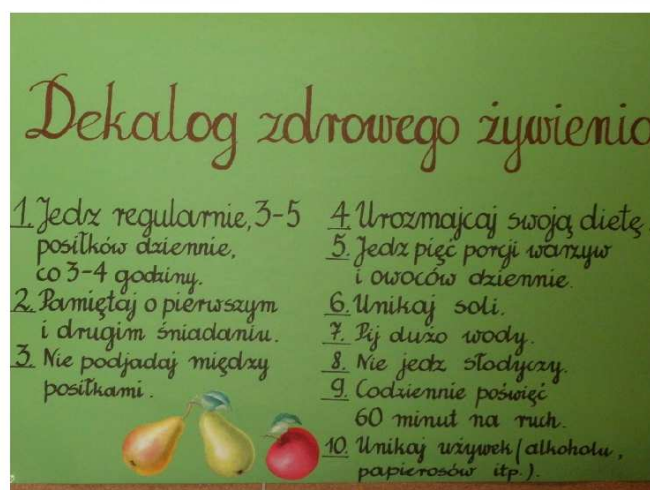 Dekalog zdrowego żywienia
1. Jedz regularnie, 3-5
posiłków dziennie,
co 3-4 godziny.
2. Pamiętaj o pierwszym
i drugim śniadaniu.
3. Nie podjadaj między
posiłkami.
4. Urozmajcaj swoją dietę
5. Jedz pięć porcji warzyw
i owoców dziennie.
6. Unikaj soli.
7. Pij dużo wody.
8. Nie jedz słodyczy.
9. Codziennie poświęć
60 minut na ruch.
10. Unikaj używek (alkoholu,
papierosów itp.).